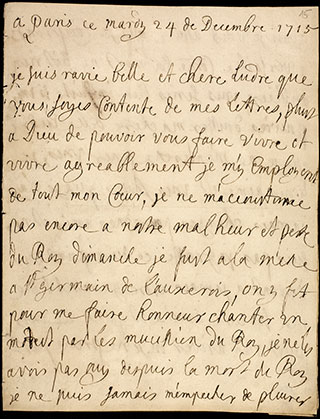 a Paris ce mardy 24 de Decembre 1715
je suis ravie belle et chere Ludre que
vous soyes contente de mes lettres, plust
a Dieu de pouvoir vous faire vivre et
vivre agreablement je my Employeroit
de tout mon Coeur, je ne m'acoutume
pas encore a nostre malheur et perte
du Roy dimanche je fust a la mese
a St germain de Lauxerois, on y fit
pour me faire honneur chanter un
motest par les musicien du Roy, je nelès
avois pas ouy despuis la mort du Roy
je ne puis jamais m'empecher de pleurer